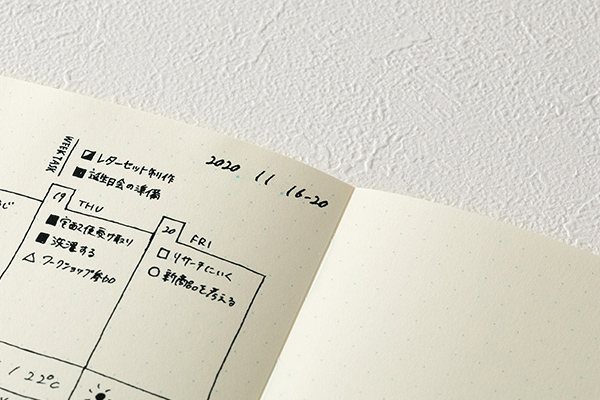 WEEK TASK
レターセット制作
誕生日会の準備
2020 11 16-20
19 THU
宅配便受け取り
洗濯する
ワークショップ参加
20 FRI
リサーチにいく
新商品を考える
/ 22℃